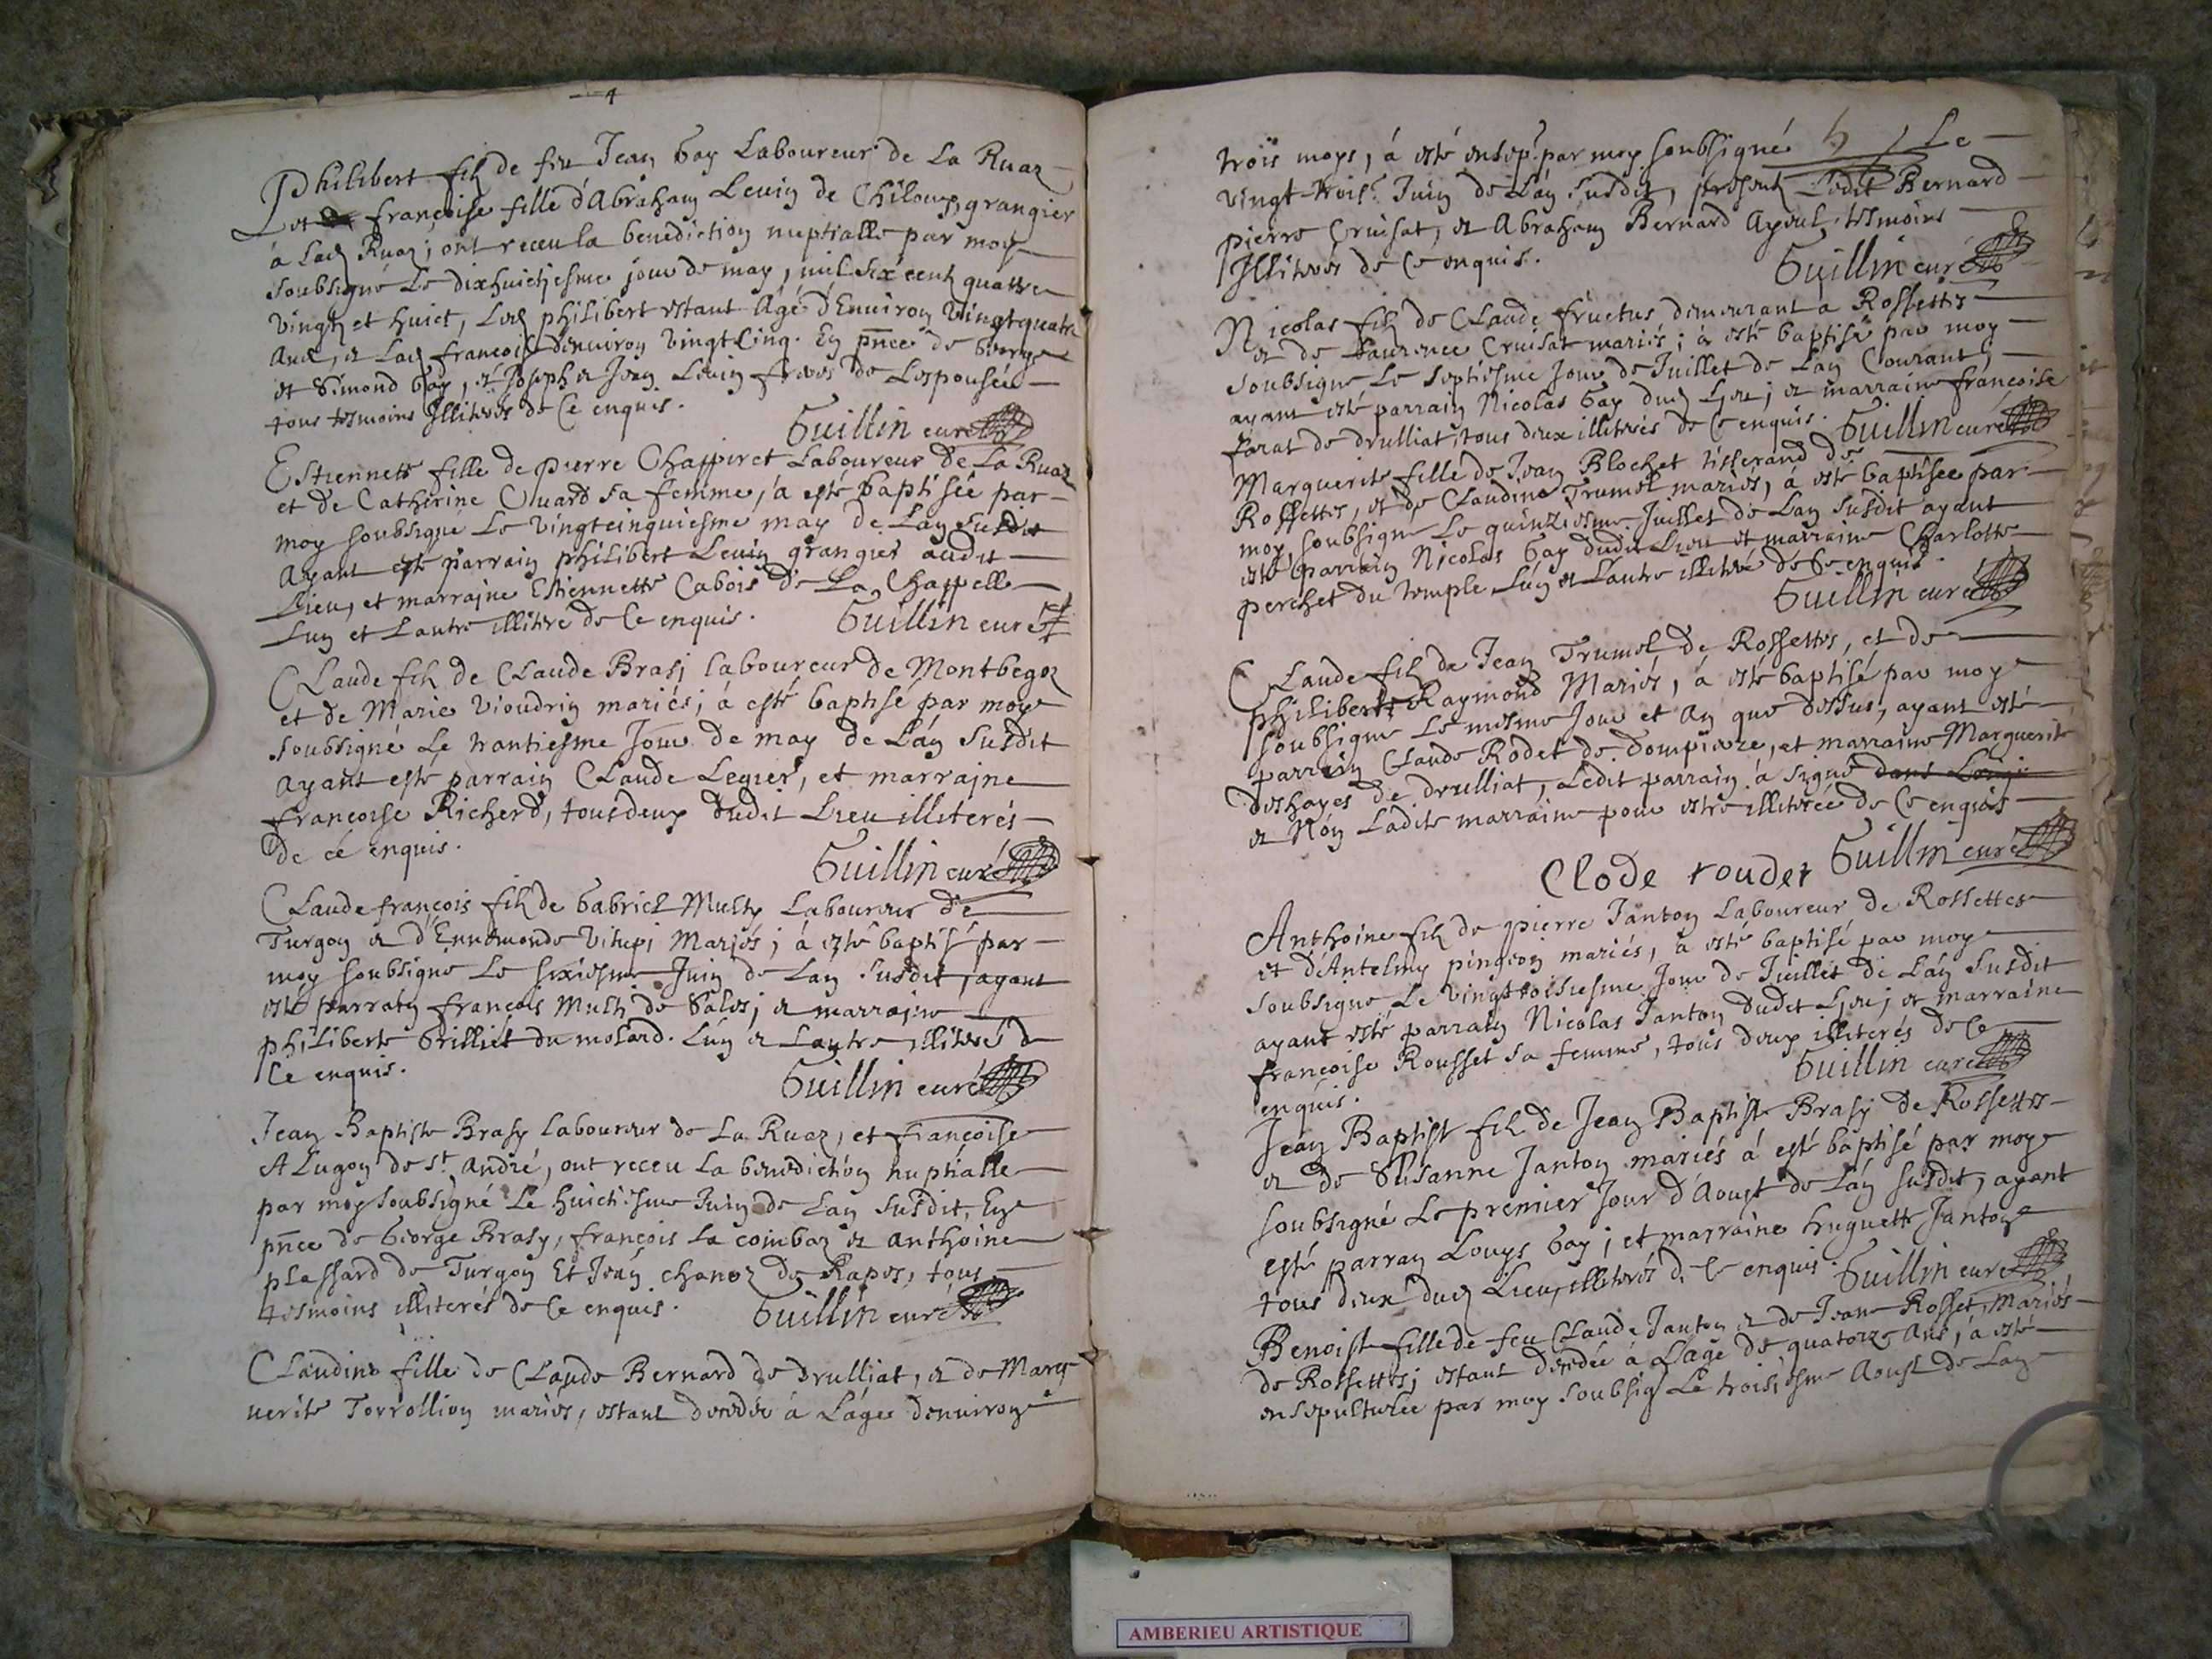 4
Philibert filz de feu Jean Gay Laboureur de La Ruaz
et francoise fille d'Abraham Levin de Chiloup, grangier
à Lad Ruaz; ont receu la benediction nuptialle par moy
soubsigné Le dixhuictiesme jour de may, mil six cent quattre
vingtz et huict, Led philibert estant Agé d'Environ Vingtquatre
Ans, et Lad francoise denviron vingt Cinq. En pnce de George
et Simond Gay, et Joseph et Jean Levin freres de Lespousée
tous tesmoins Illiterés de Ce enquis.
Guillin curé
Estiennette fille de pierre Chappiret Laboureur de La Ruaz
et de Catherine Cluard sa femme, a esté baptisée par
moy soubsigné Le Vingtcinquiesme may de Lan susdit
Ayant esté parrain philibert Levin grangier audit
Lieu, et marraine Estiennette Cabois de La Chappelle
Lun et Lautre illitere de Ce enquis.
Guillin curé
Claude filz de Claude Brasj laboureur de Montbegoz
et de Marie Vioudrin mariés; à esté baptisé par moy
soubsigné Le trantiesme Jour de may de L'an susdit
Ayant esté parrain Claude Legier, et marraine
francoise Richerd, tous deux dudit Lieu illiterés
de cé enquis.
Guillin curé
Claude françois filz de Gabriel Multy Laboureur de
Turgon et d'Ennemonde Vitupj Mariés; à esté baptisé par
moy soubsigné Le sixiesme Juin de Lan susdit, ayant
esté parrain francois Multi de Sales; et marraine
philiberte Brilliet du molard. Lun et Lautre illiteré de
Ce enquis.
Guillin curé
Jean Baptiste Brasy laboureur de La Ruaz, et françoise
Alugon de St. André, ont receu La benediction nuptialle
par moy soubsigné Le huictiesme Juin de Lan susdit, En
pnce de George Brasy, françois la coimbaz et anthoine
plassard de Turgon Et Jean chanoz de Rapes, tous
tesmoins illiterés de Ce enquis.
Guillin curé
Claudine fille de Claude Bernard de drulliat, et de Marg
uerite Terrollion mariés, estant decedée à L'agee denviron
trois moys, à esté ensep. par moy soubsigné 5 Le
vingt-trois. Juin de Lan susdit, presentz Ledit Bernard
pierre Cruisat, et Abraham Bernard Ayeul, tesmoins
Illiteres de Ce enquis.
Guillin curé
Nicolas filz de Claude fructus demeurant a Rossettes
et de Laurence Cruisat mariés; à esté baptisé par moy
soubsigné Le septiesme Jour de Juillet de Lan Courant,
ayant esté parrain Nicolas Gay dud Lieu; et marraine françoise
farat de drulliat, tous deux illiterés de Ce enquis.
Guillin curé
Marguerite fille de Jean Blochet tisserand de
Rossettes, et de Claudine Trumel mariés, à esté baptisée par
moy, soubsigné Le quinziesme Juillet de Lan susdit ayant
esté parrain Nicolas Gay dudit Lieu et marraine Charlotte
perchet du temple Lun et Lautre illiteré de Ce enquis.
Guillin curé
Claude filz de Jean Trumel de Rossettes, et de
philiberte Raymond Mariés, à esté baptisé par moy
soubsigné Le mesme Jour et An que dessus, ayant esté
parrain Claude Rodet de dompierre, et marraine Marguerite
deshayes de drulliat, Ledit parrain à signé
et Non Ladite marraine pour estre illiterée de Ce enquis
Clode roudet
Guillin curé
Anthoine filz de pierre Janton Laboureur de Rossettes
et d'Antelmy pingeon mariés, à esté baptisé par moy
soubsigné Le vingttroisiesme Jour de Juillet de Lan susdit
ayant esté parrain Nicolas Janton dudit Lieu; et marraine
francoise Rousset sa femme, tous deux illiterés de Ce
enquis.
Guillin curé
Jean Baptiste filz de Jean Baptiste Brasy de Rossettes
et de Susanne Janton mariés à esté baptisé par moy
soubsigné Le premier Jour d'Aoust de Lan susdit, ayant
esté parran Louys Gay; et marraine huguette Janton
tous deux dud Lieu, illiterés de Ce enquis.
Guillin curé
Benoiste fille de feu Claude Janton et de Jeane Rosset, Mariés
de Rossettes; estant decedée à L'agé de quatorze Ans, à esté
ensepulturée par moy soubsig Le troisiesme Aoust de Lan
AMBERIEU ARTISTIQUE